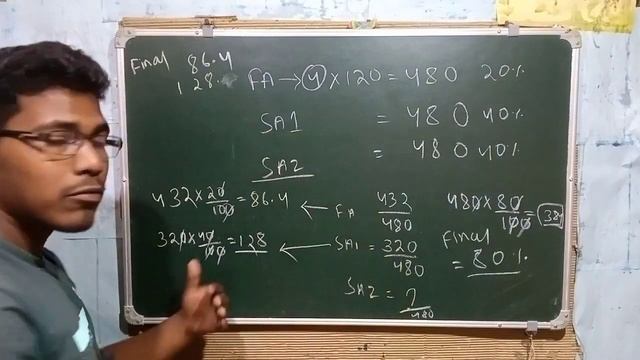 Final 86.4
128.
FA → 4 × 120 = 480 20%
SA1 = 480 40%
SA2 = 480 40%
432 × 20/100 = 86.4 ← FA 432/480
320 × 40/100 = 128 ← SA1 = 320/480
SA2 = ?/480
480 × 80/100 = 384
Final
= 80%